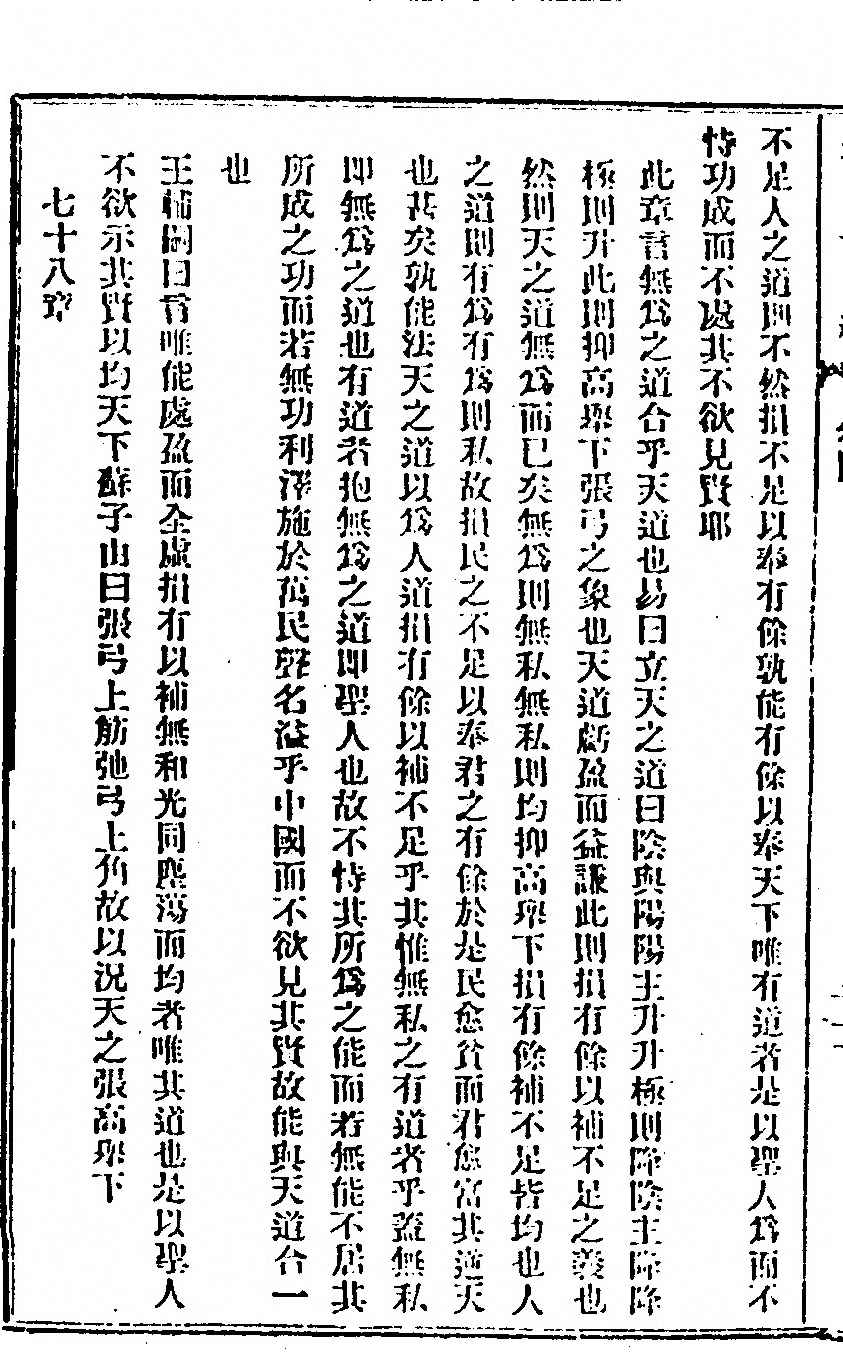 不足人之道則不然損不足以奉有餘孰能有餘以奉天下唯有道者是以聖人爲而不
恃功成而不處其不欲見賢耶
此章言無爲之道合乎天道也易曰立天之道曰陰與陽陽主升升極則降陰主降降
極則升此則抑高舉下張弓之象也天道虧盈而益謙此則損有餘以補不足之義也
然則天之道無爲而已矣無爲則無私無私則均抑高舉下損有餘補不足皆均也人
之道則有爲有爲則私故損民之不足以奉君之有餘於是民愈貧而君愈富其逆天
也甚矣孰能法天之道以爲人道損有餘以補不足乎其惟無私之有道者乎蓋無私
即無爲之道也有道者抱無爲之道即聖人也故不恃其所爲之能而若無能不居其
所成之功而若無功利澤施於萬民聲名溢乎中國而不欲見其賢故能與天道合一
也
王輔嗣曰言唯能處盈而全虛損有以補無和光同塵蕩而均者唯其道也是以聖人
不欲示其賢以均天下蘇子由曰張弓上筋弛弓上角故以況天之張高舉下
七十八章